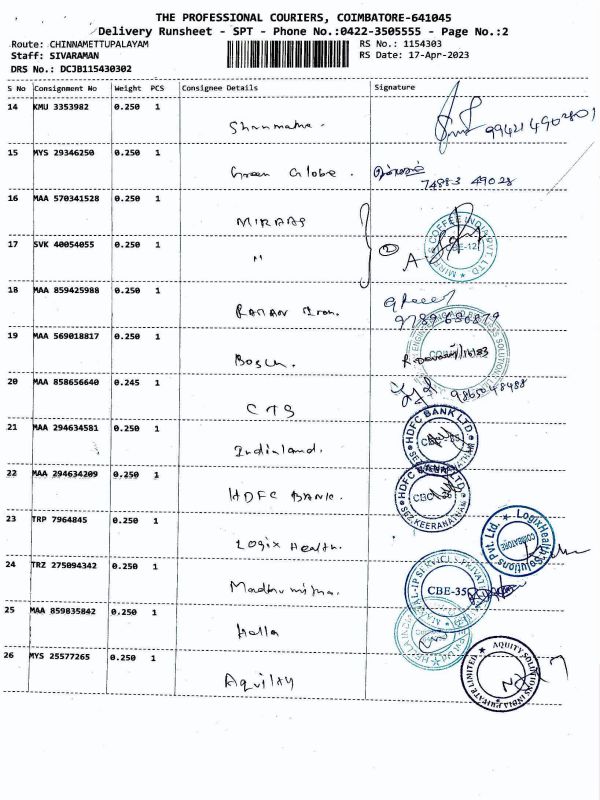 THE PROFESSIONAL COURIERS, COIMBATORE-641045
Delivery Runsheet - SPT - Phone No.:0422-3505555 - Page No.:2
Route: CHINNAMETTUPALAYAM RS No.: 1154303
Staff: SIVARAMAN RS Date: 17-Apr-2023
DRS No.: DCJB115430302
S No Consignment No Weight PCS Consignee Details Signature
14 KMU 3353982 0.250 1
15 MYS 29346250 0.250 1 Green Globe.
74883 49028
16 MAA 570341528 0.250 1 MIRABS
17 SVK 40054055 0.250 1 " 2
MIRABS COFFEE INDIA PVT. LTD
18 MAA 859425988 0.250 1 RAMAN Iron.
19 MAA 569018817 0.250 1 Bosch.
20 MAA 858656640 0.245 1 CTS 9865048488
21 MAA 294634581 0.250 1 Indialand. HDFC BANK LTD
22 MAA 294634209 0.250 1 HDFC BANK. HDFC BANK LTD
SEZ KEERANATHAM
23 TRP 7964845 0.250 1 Logix Health. LogixHealth Solutions Pvt. Ltd.
COIMBATORE
24 TRZ 275094342 0.250 1 CBE-35
25 MAA 859835842 0.250 1 Hella
26 MYS 25577265 0.250 1 Aquity AQUITY SOLUTIONS INDIA PRIVATE LIMITED